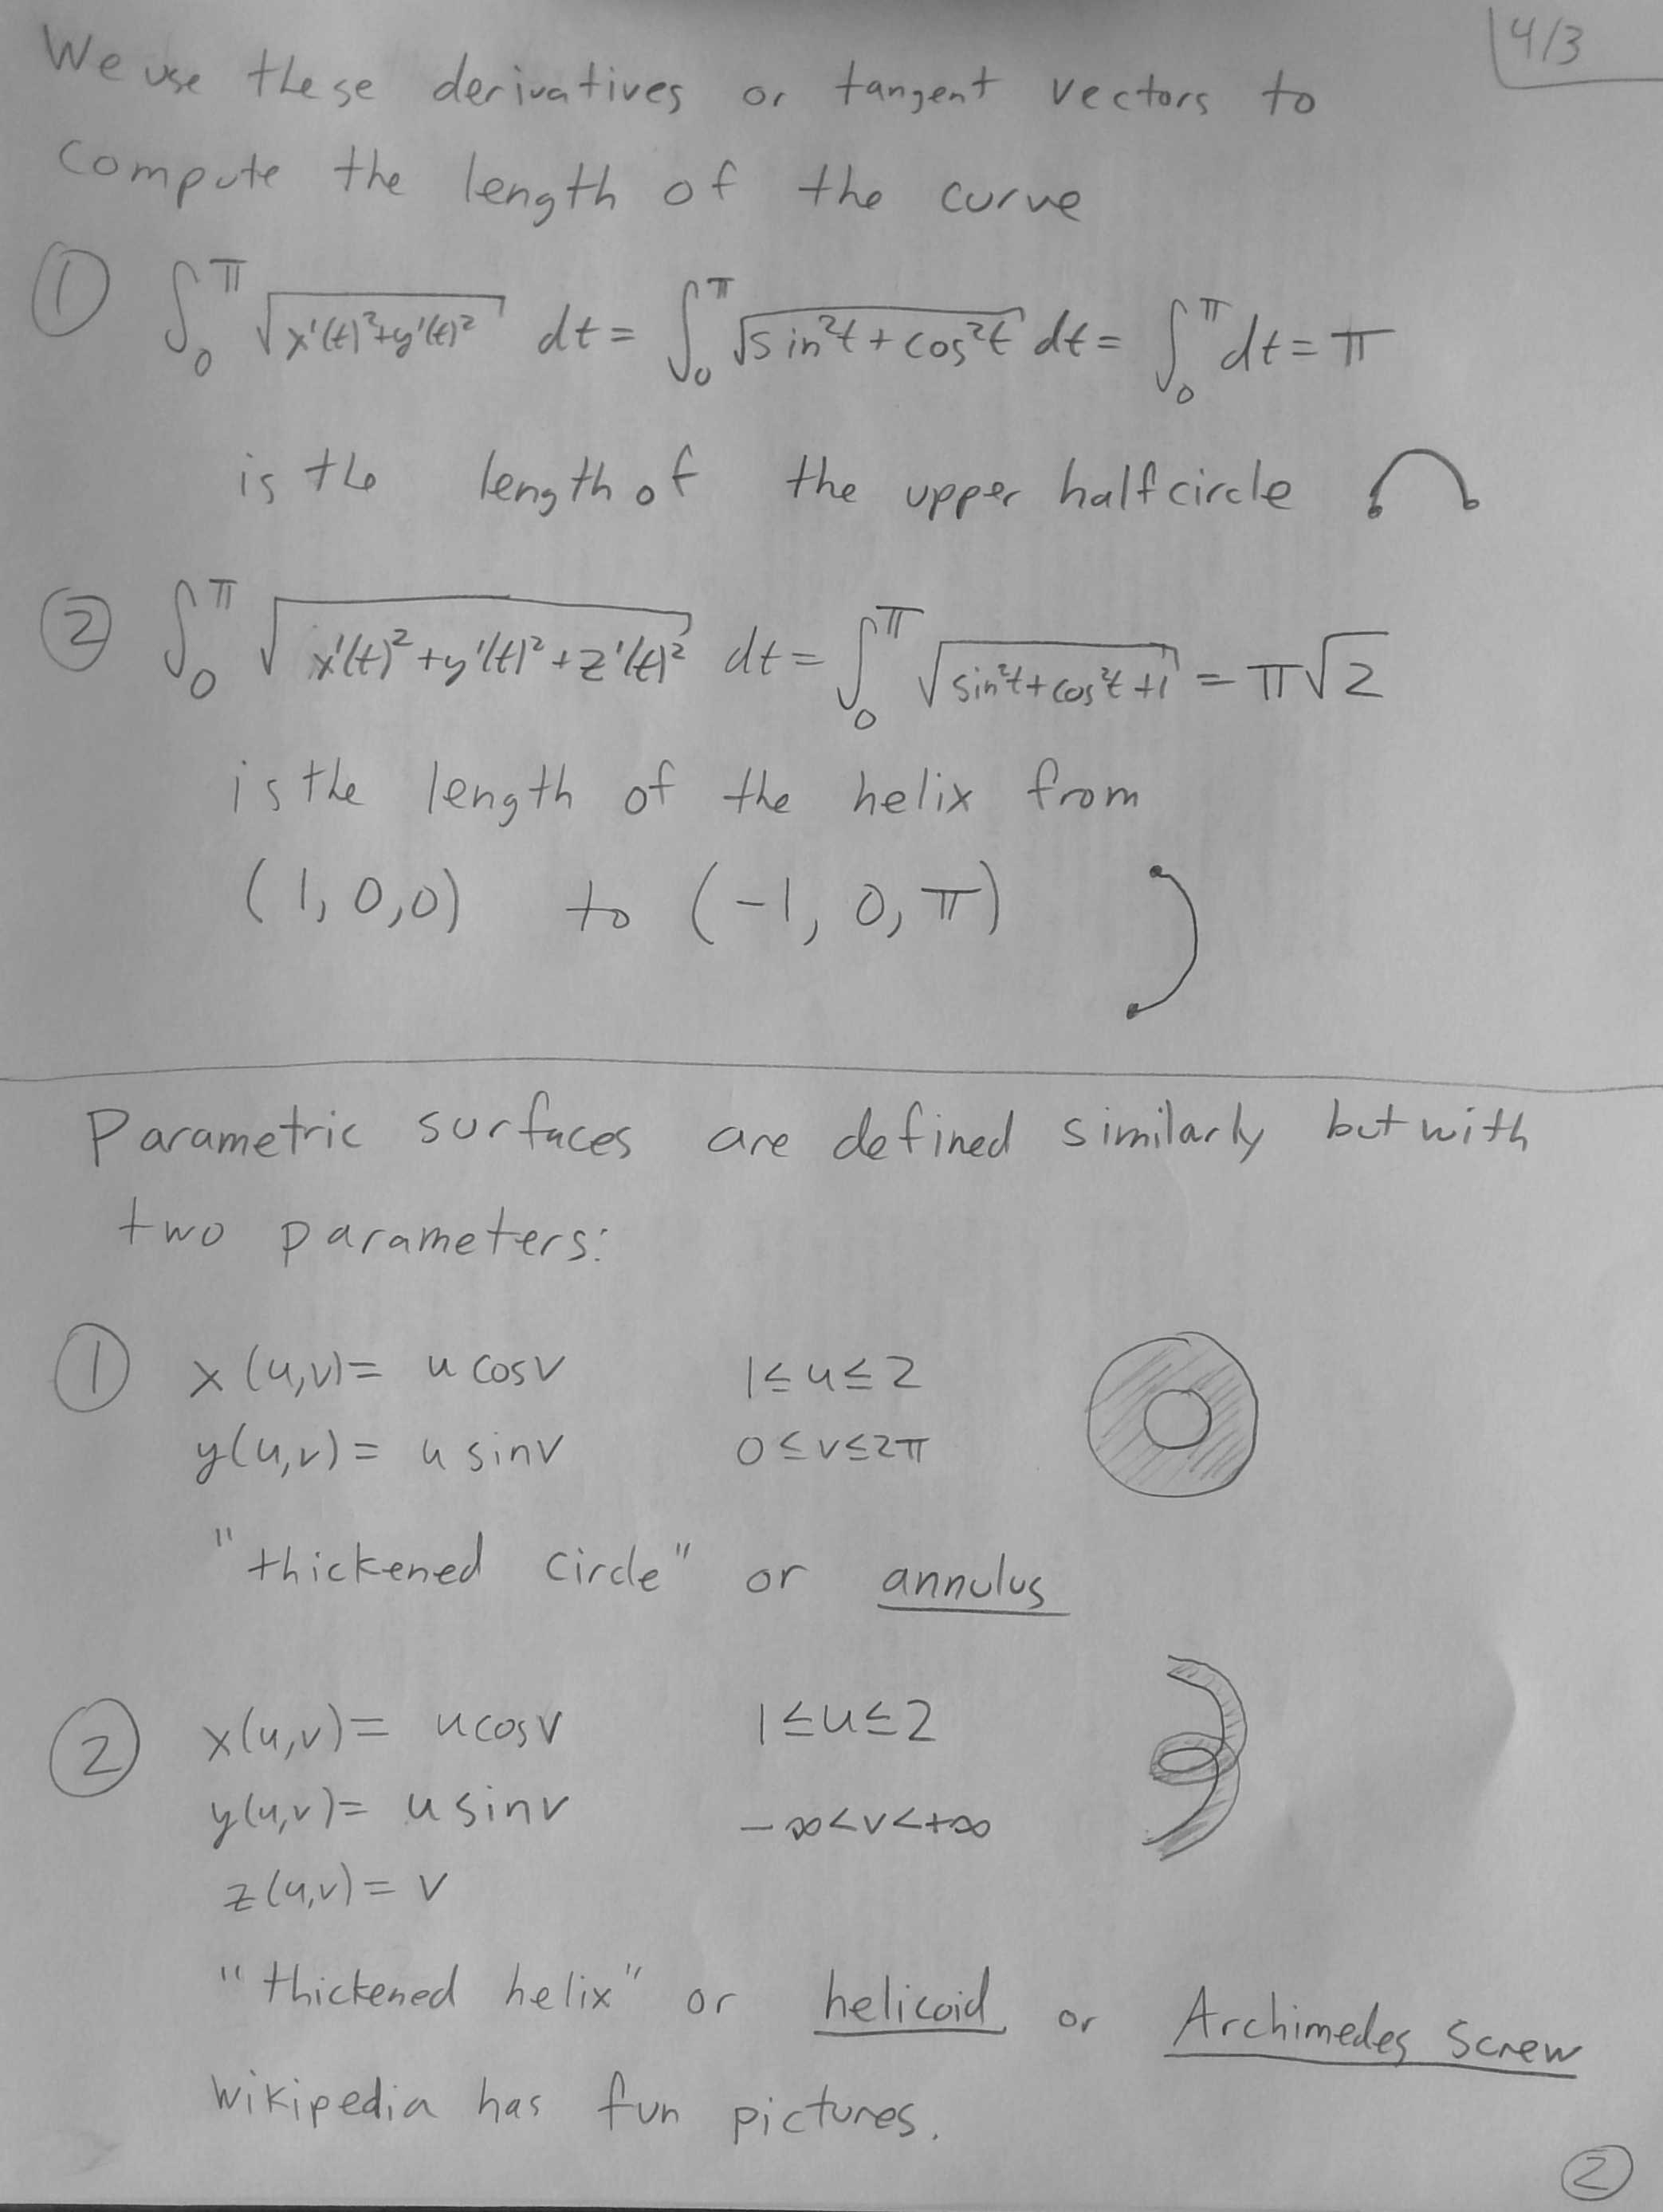 4/3
We use these derivatives or tangent vectors to
compute the length of the curve
① ∫₀^π √(x'(t)²+y'(t)²) dt = ∫₀^π √(sin²t + cos²t) dt = ∫₀^π dt = π
is the length of the upper half circle
② ∫₀^π √(x'(t)²+y'(t)²+z'(t)²) dt = ∫₀^π √(sin²t+cos²t+1) = π√2
is the length of the helix from
(1, 0, 0) to (-1, 0, π)
Parametric surfaces are defined similarly but with
two parameters:
① x(u,v) = u cosv 1≤u≤2
y(u,v) = u sinv 0≤v≤2π
"thickened circle" or annulus
② x(u,v) = ucosv 1≤u≤2
y(u,v) = usinv -∞<v<+∞
z(u,v) = v
"thickened helix" or helicoid or Archimedes Screw
Wikipedia has fun pictures.
②